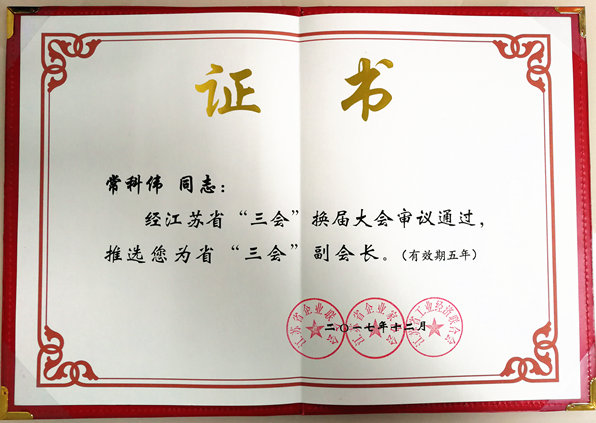 证书
常科伟 同志：
经江苏省“三会”换届大会审议通过，
推选您为省“三会”副会长。（有效期五年）
江苏省企业联合会
江苏省企业家协会
江苏省工业经济联合会
二〇一七年十二月